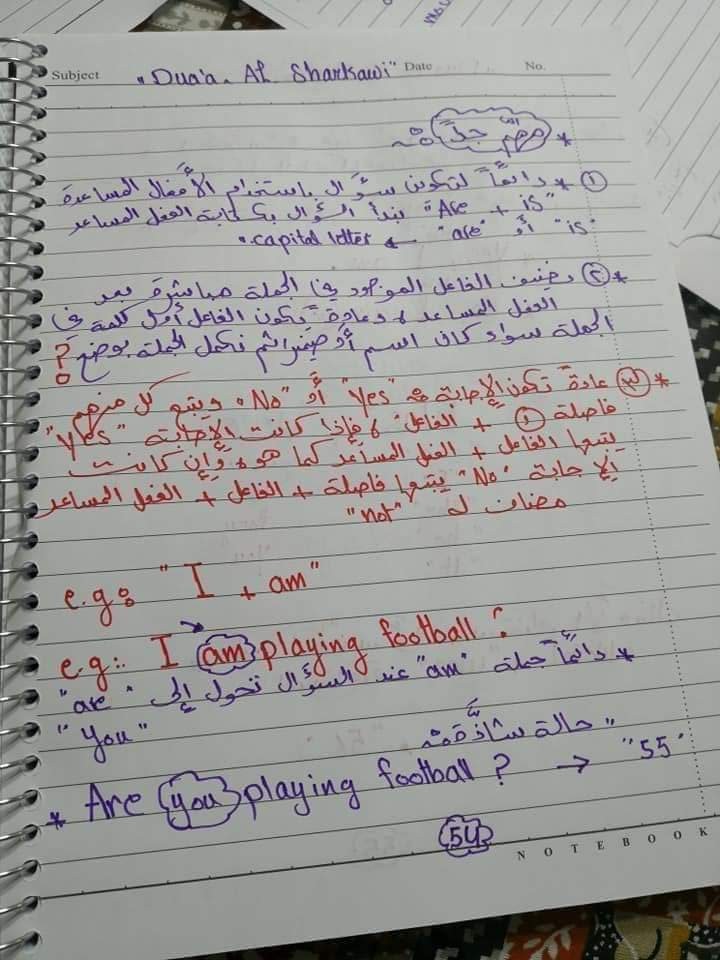 Subject "Dua'a. Al Sharkawi" Date No.
* مهم جداً :
① * دائماً لتكوين سؤال باستخدام الأفعال المساعدة
"Are + is" نبدأ السؤال بكتابة الفعل المساعد
"is" أو "are" ← capital letter.
* ② نضيف الفاعل الموجود في الجملة مباشرة بعد
الفعل المساعد، وعادةً يكون الفاعل أول كلمة في
الجملة سواء كان اسم أو ضمير ثم نكمل الجملة بوضع ?
* ③ عادةً تكون الإجابة بـ "Yes" أو "No" ويتبع كل منهم
فاصلة ، + الفاعل، فإذا كانت الإجابة "Yes"
يتبعها الفاعل + الفعل المساعد كما هو، وإن كانت
الإجابة "No" يتبعها فاصلة + الفاعل + الفعل المساعد
مضاف له "not"
e.g: "I + am"
e.g:. I am playing football .
* دائماً جملة "am" عند السؤال تحول إلى "are"
"You"
"حالة شاذة
* Are you playing football ? → "55"
54
NOTEBOOK